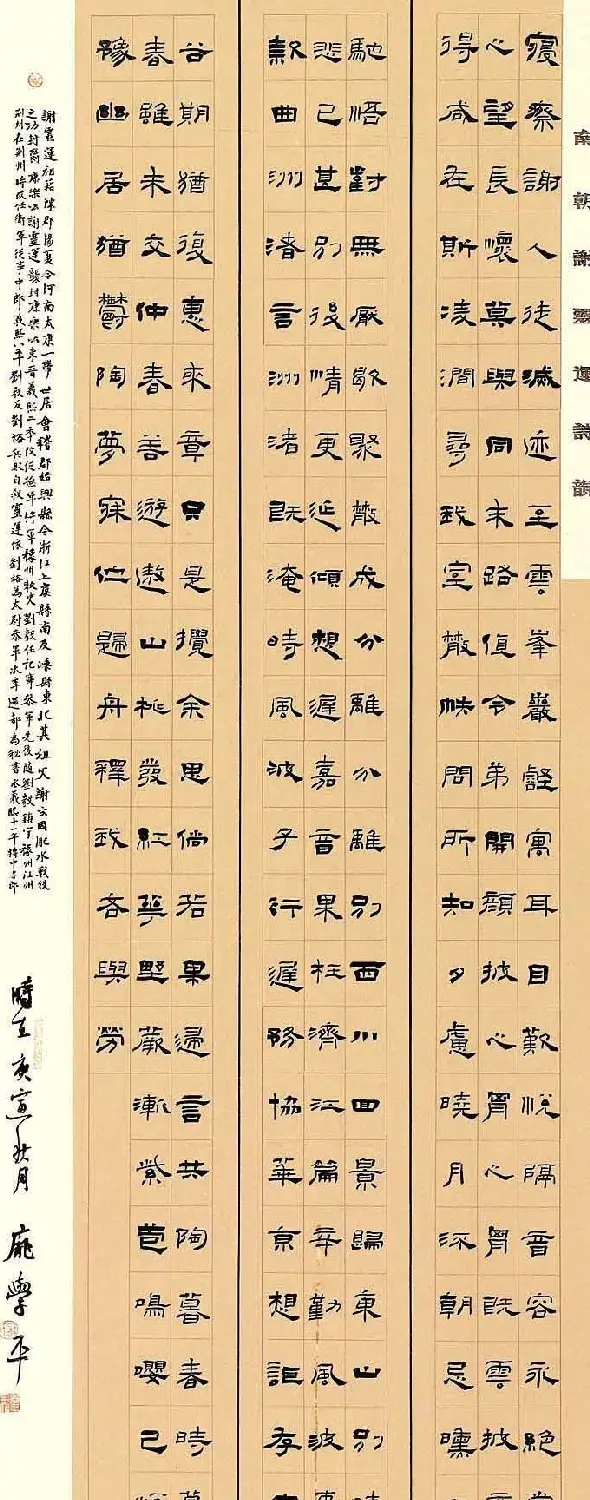 南朝謝靈運詩韻
寢瘵謝人徒滅迹至雲峯巖壑寓耳目歡悅隔音容永絕
心望長懷莫與同末路值令弟開顏披心胷心胷既雲披
得咸在斯凌澗尋我室散帙問所知夕慮曉月流朝忌曛
馳悟對無厭歇聚散成分離分離別西川回景歸東山別
悲已甚別後情更延傾想遲嘉音果枉濟江篇辛勤風波
款曲洲渚言洲渚既淹時風波子行遲務協華京想詎存
谷期猶復惠來章只是攪余思倘若果歸言共陶暮春時
春雖未交仲春善遊遨山桃發紅萼野蕨漸紫苞鳴嚶已
豫幽居猶鬱陶夢寐佇歸舟釋我吝與勞
謝靈運祖籍陳郡陽夏今河南太康一帶世居會稽郡紹興縣今浙江上虞縣南及嵊縣東北其祖父謝玄因肥水戰後
之功封爵康樂公謝靈運襲封康樂公東晉義熙二年
時在庚寅秋月
龐學平